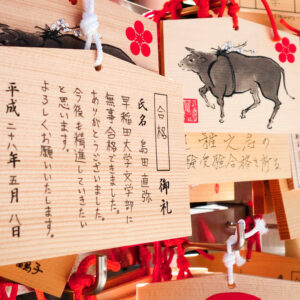 合格 御礼
氏名 島田 直弥
早稲田大学文学部に
無事合格できました。
ありがとうございました。
今後も精進していきたい
と思います。
よろしくお願いいたします。
平成二十八年五月八日